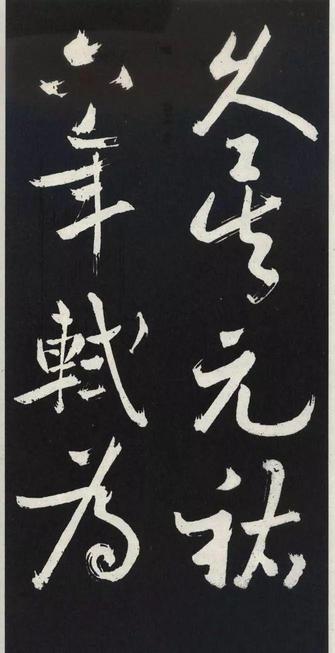 久矣元祐
六年軾為